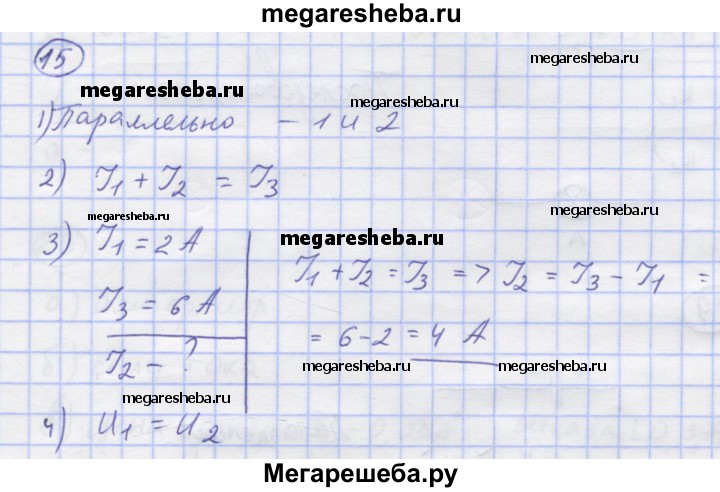 megaresheba.ru
15
megaresheba.ru
megaresheba.ru
megaresheba.ru
1) Параллельно - 1 и 2
2) I1 + I2 = I3
megaresheba.ru
megaresheba.ru
3) I1 = 2 А
megaresheba.ru
I1 + I2 = I3 => I2 = I3 - I1 =
I3 = 6 А
= 6 - 2 = 4 А
I2 - ?
megaresheba.ru
megaresheba.ru
megaresheba.ru
4) U1 = U2
Мегарешеба.ру